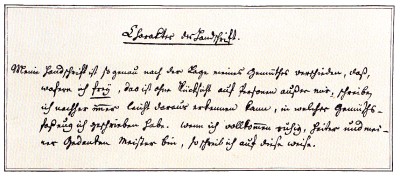 Charakter der Handschrift.
Meine Handschrift ist so genau nach der Lage meines Gemüthes verschieden, daß,
wofern ich frey, das ist ohne Rücksicht auf Personen außer mir, schreibe,
ich nachher immer leicht daraus erkennen kann, in welcher Gemüths-
faßung ich geschrieben habe. Wenn ich vollkommen ruhig, heiter und mei-
ner Gedanken Meister bin, so schreib ich auf diese weise.